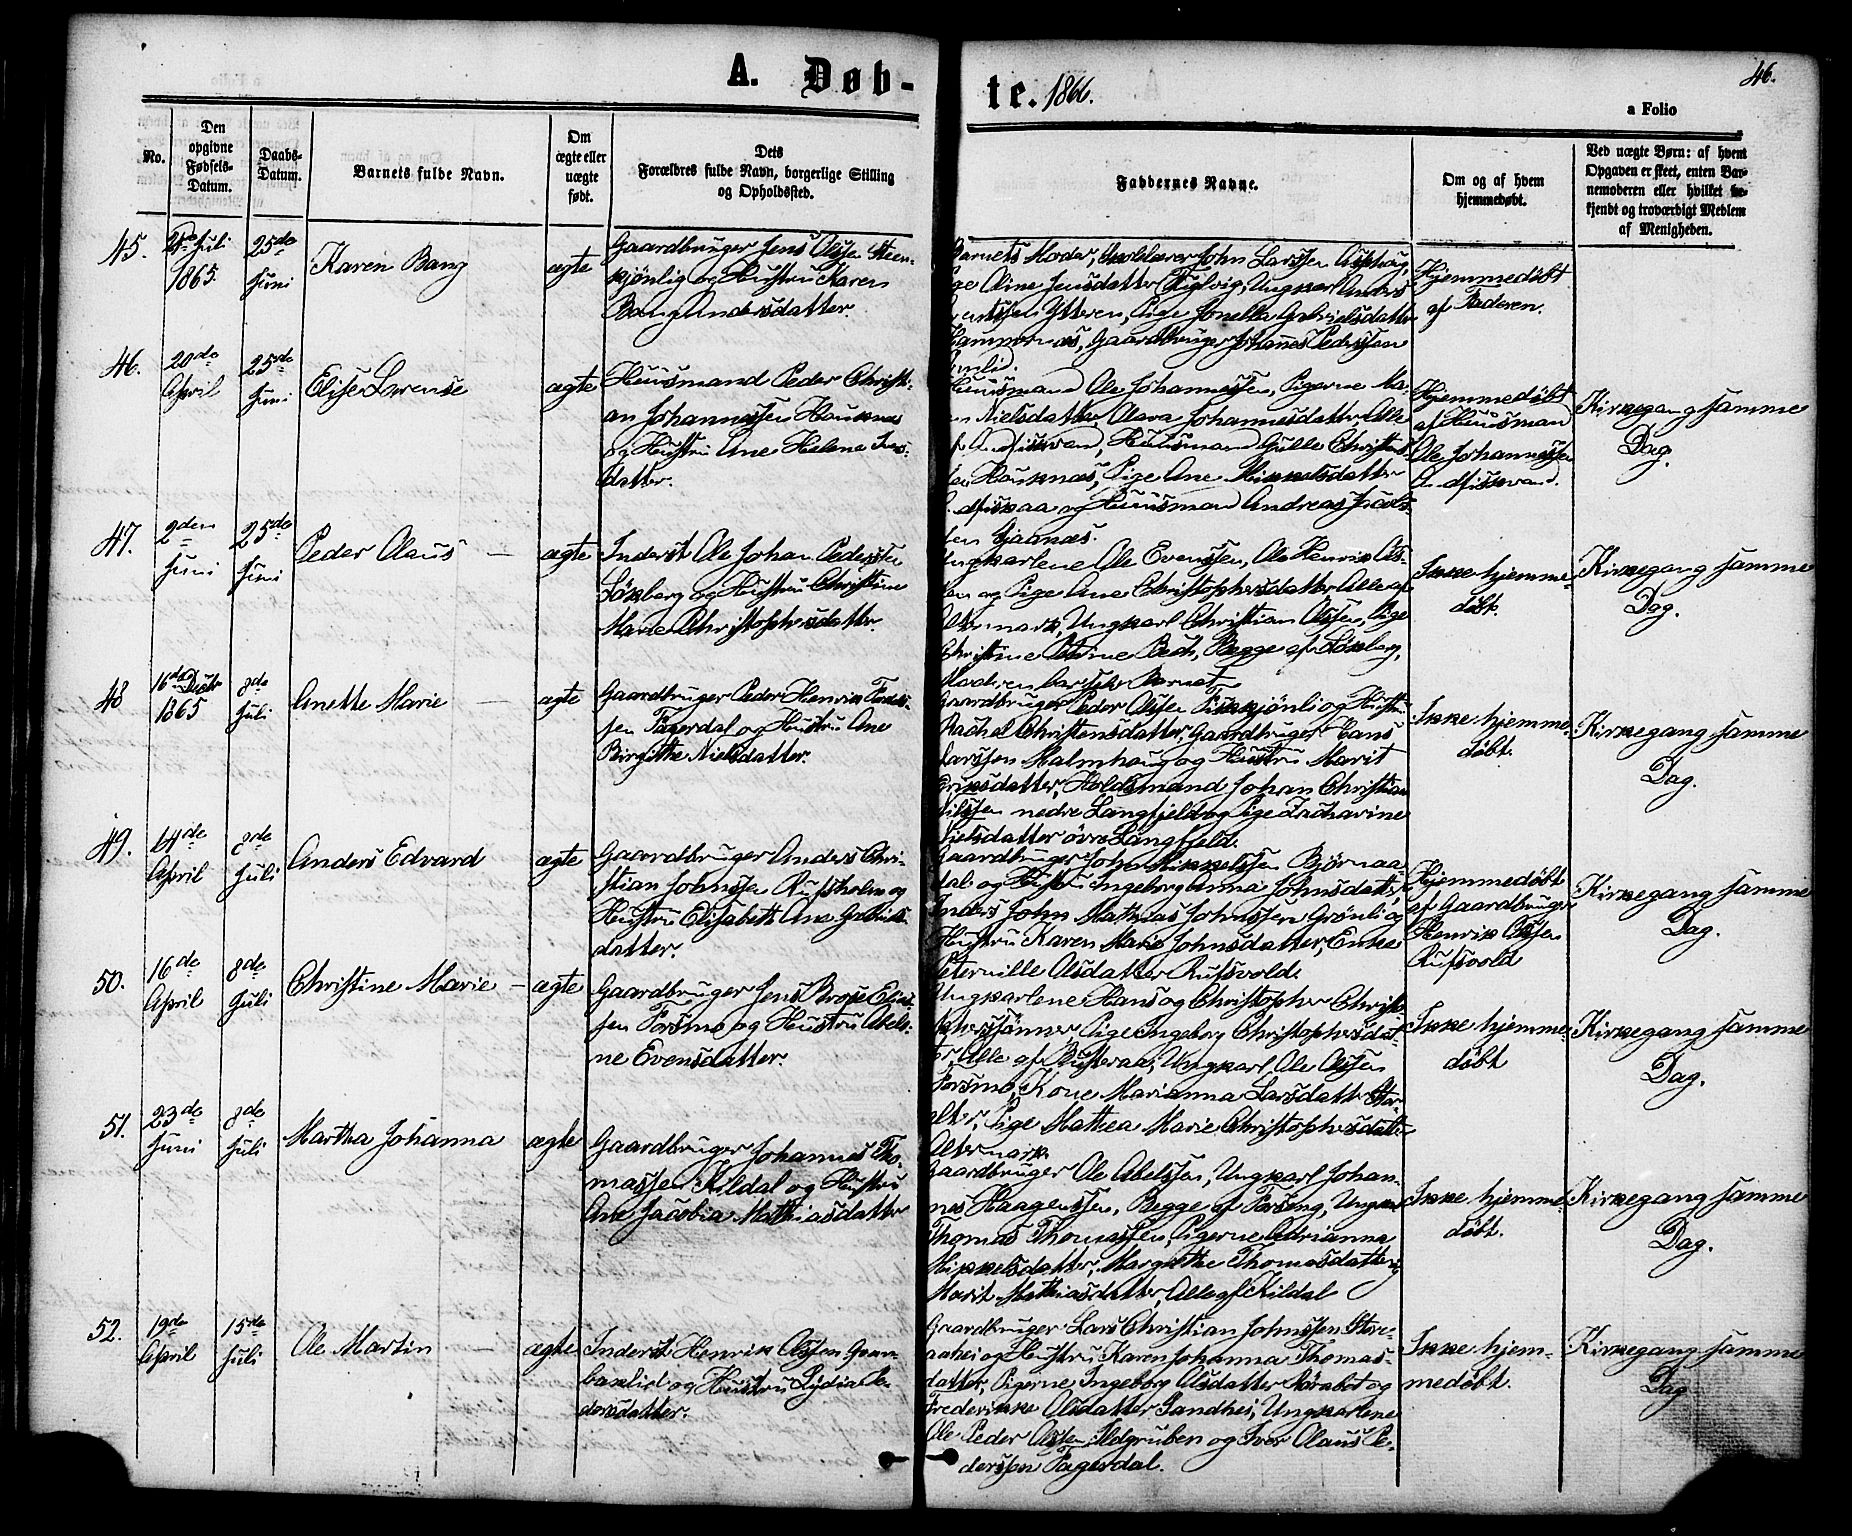 A. Døb-
te. 1866.
46.
a Folio
No.
Den
opgivne
Fødsels-
Datum.
Daabs-
Datum.
Barnets fulde Navn.
Om
ægte eller
uægte
født.
Dets
Forældres fulde Navn, borgerlige Stilling
og Opholdssted.
Faddernes Navne.
Om og af hvem
hjemmedøbt.
Ved uægte Børn: af hvem
Opgaven er skeet, enten Bar-
nemoderen eller hvilket be-
kjendt og troværdigt Medlem
af Menigheden.
45.
Juli
1865.
25de
Juni
Karen Bang
ægte
Gaardbruger Jens Olssen
og Hustru Karen
Bang Andersdatter.
Barnets Moder, Skolelærer John Larssen
Aline Jensdatter Ungkarl Anders
Ytteren, Pige Jonella Gabrielsdatter
Gaardbruger Johannes Pederssen
Hjemmedøbt
af Faderen.
46.
20de
April
25de
Juni
Elise Lorense
ægte
Huusmand Peder Christi-
an Johannessen Hauknes
og Hustru Ane Helene
datter.
Huusmand Ole Johannessen, Pigerne Ma-
Nielsdatter, Olava Johannesdatter, Alle
Huusmand Gulle Christens-
Hauknæs, Pige Ane Mikkelsdatter
og Huusmand Andreas Jacob-
Hjemmedøbt
af Huusmand
Ole Johannessen
Kirkegang samme
Dag.
47.
2den
Juni
25de
Juni
Peder Olaus
ægte
Inderst Ole Johan Pederssen
og Hustru Christine
Marie Christophersdatter.
Ungkarlene Ole Evenssen, Ole Henrik Ols-
sen og Pige Ane Christophersdatter Alle af
Altermark, Ungkarl Christian Olssen, Pige
Christine Petrine Bech, Begge af
Moderen bar selv Barnet.
Ikke hjemme-
døbt.
Kirkegang samme
Dag.
48
16de
1865
8de
Juli
Anette Marie
ægte
Gaardbruger Peder Henrik Peders-
sen Fagerdal og Hustru Ane
Birgitte Nielsdatter.
Gaardbruger Peder Olssen og Hustru
Rachel Christensdatter, Gaardbruger Hans
Larssen Malmhaug og Hustru Marit
datter, Holdsmand Johan Christian
Nilssen nedre Langfjeld og Pige Zacharine
Nielsdatter øvre Langfjeld.
Ikke hjemme-
døbt.
Kirkegang samme
Dag.
49.
14de
April
8de
Juli
Anders Edvard
ægte
Gaardbruger Anders Chri-
stian Johnssen Rufsholm og
Hustru Elisabeth Ane Gabriels-
datter.
Gaardbruger John Mikkelssen Bjørnaa-
dal og Hustru Ingeborg Anna Johnsdatter,
Inders. John Mathias Johnssen Grønli og
Hustru Karen Marie Johnsdatter, Enke
Peternille Olsdatter Rufsvold.
Hjemmedøbt
af Gaardbruger
Henrik Olssen
Rufsvold
Kirkegang samme
Dag.
50.
16de
April
8de
Juli
Christine Marie
ægte
Gaardbruger Jens Brose
sen Forsmo og Hustru Abel-
ne Evensdatter.
Ungkarlene Hans og Christopher Christo-
pherssønner, Pige Ingeborg Christophersdat-
ter, Alle af Ungkarl, Ole Olssen
Forsmo, Kone Marianna Larsdatter
Pige Mathea Marie Christophersdatter
Altermark
Ikke hjemme-
døbt
Kirkegang samme
Dag.
51.
23de
Juni
8de
Juli
Martha Johanna
ægte
Gaardbruger Johannes Tho-
massen Kildal og Hustru
Ane Jacobia Mathiasdatter
Gaardbruger Ole Abelssen, Ungkarl Johan-
nes Haagenssen, Begge af Ungkarl
Thomas Thomassen, Pigerne Adrianna
Mikkelsdatter, Margrethe Thomasdatter,
Marit Mathiasdatter, Alle af Kildal
Ikke hjemme-
døbt.
Kirkegang samme
Dag.
52.
19de
April
15de
Juli
Ole Martin
ægte
Inderst Henrik Olssen
og Hustru Lydia Pe-
dersdatter.
Gaardbruger Lars Christian Johnssen Store-
og Hustru Karen Johanna Thomas-
datter, Pigerne Ingeborg Olsdatter og
Frederikke Olsdatter Sandhei, Ungkarlene
Ole Peder Olssen, Ildgruben og Iver Olaus Pe-
derssen Fagerdal.
Ikke hjem-
medøbt.
Kirkegang samme
Dag